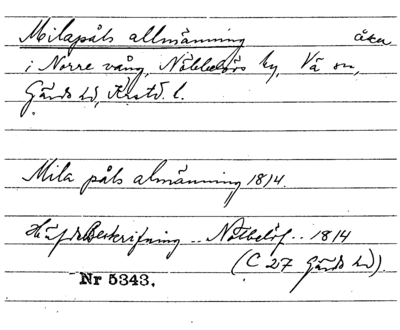 Milapåls allmänning åker
i Norre vång, Nöbbelövs by, Vä sn,
Gärds hd, Krstd. l.
Mila påls almänning 1814.
Häfdebeskrifning .. Nöbelöf .. 1814
(C 27 Gärds hd).
Nr 5343.